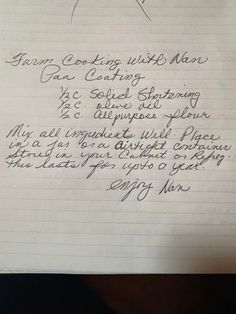 Farm Cooking With Nan
Pan Coating
1/2 c Solid Shortening
1/2 c olive oil
1/2 c Allpurpose flour
Mix all ingredients Well. Place
in a jar or a airtight container
Store in your Cabinet or Refreg.
This lasts for upto a year.
enjoy Nan